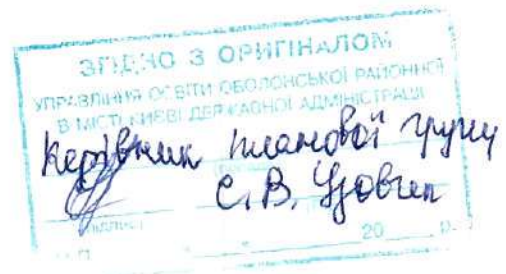 ЗГІДНО З ОРИГІНАЛОМ
УПРАВЛІННЯ ОСВІТИ ОБОЛОНСЬКОЇ РАЙОННОЇ
В МІСТІ КИЄВІ ДЕРЖАВНОЇ АДМІНІСТРАЦІЇ
Керівник планової групи
С.В.
20 р.